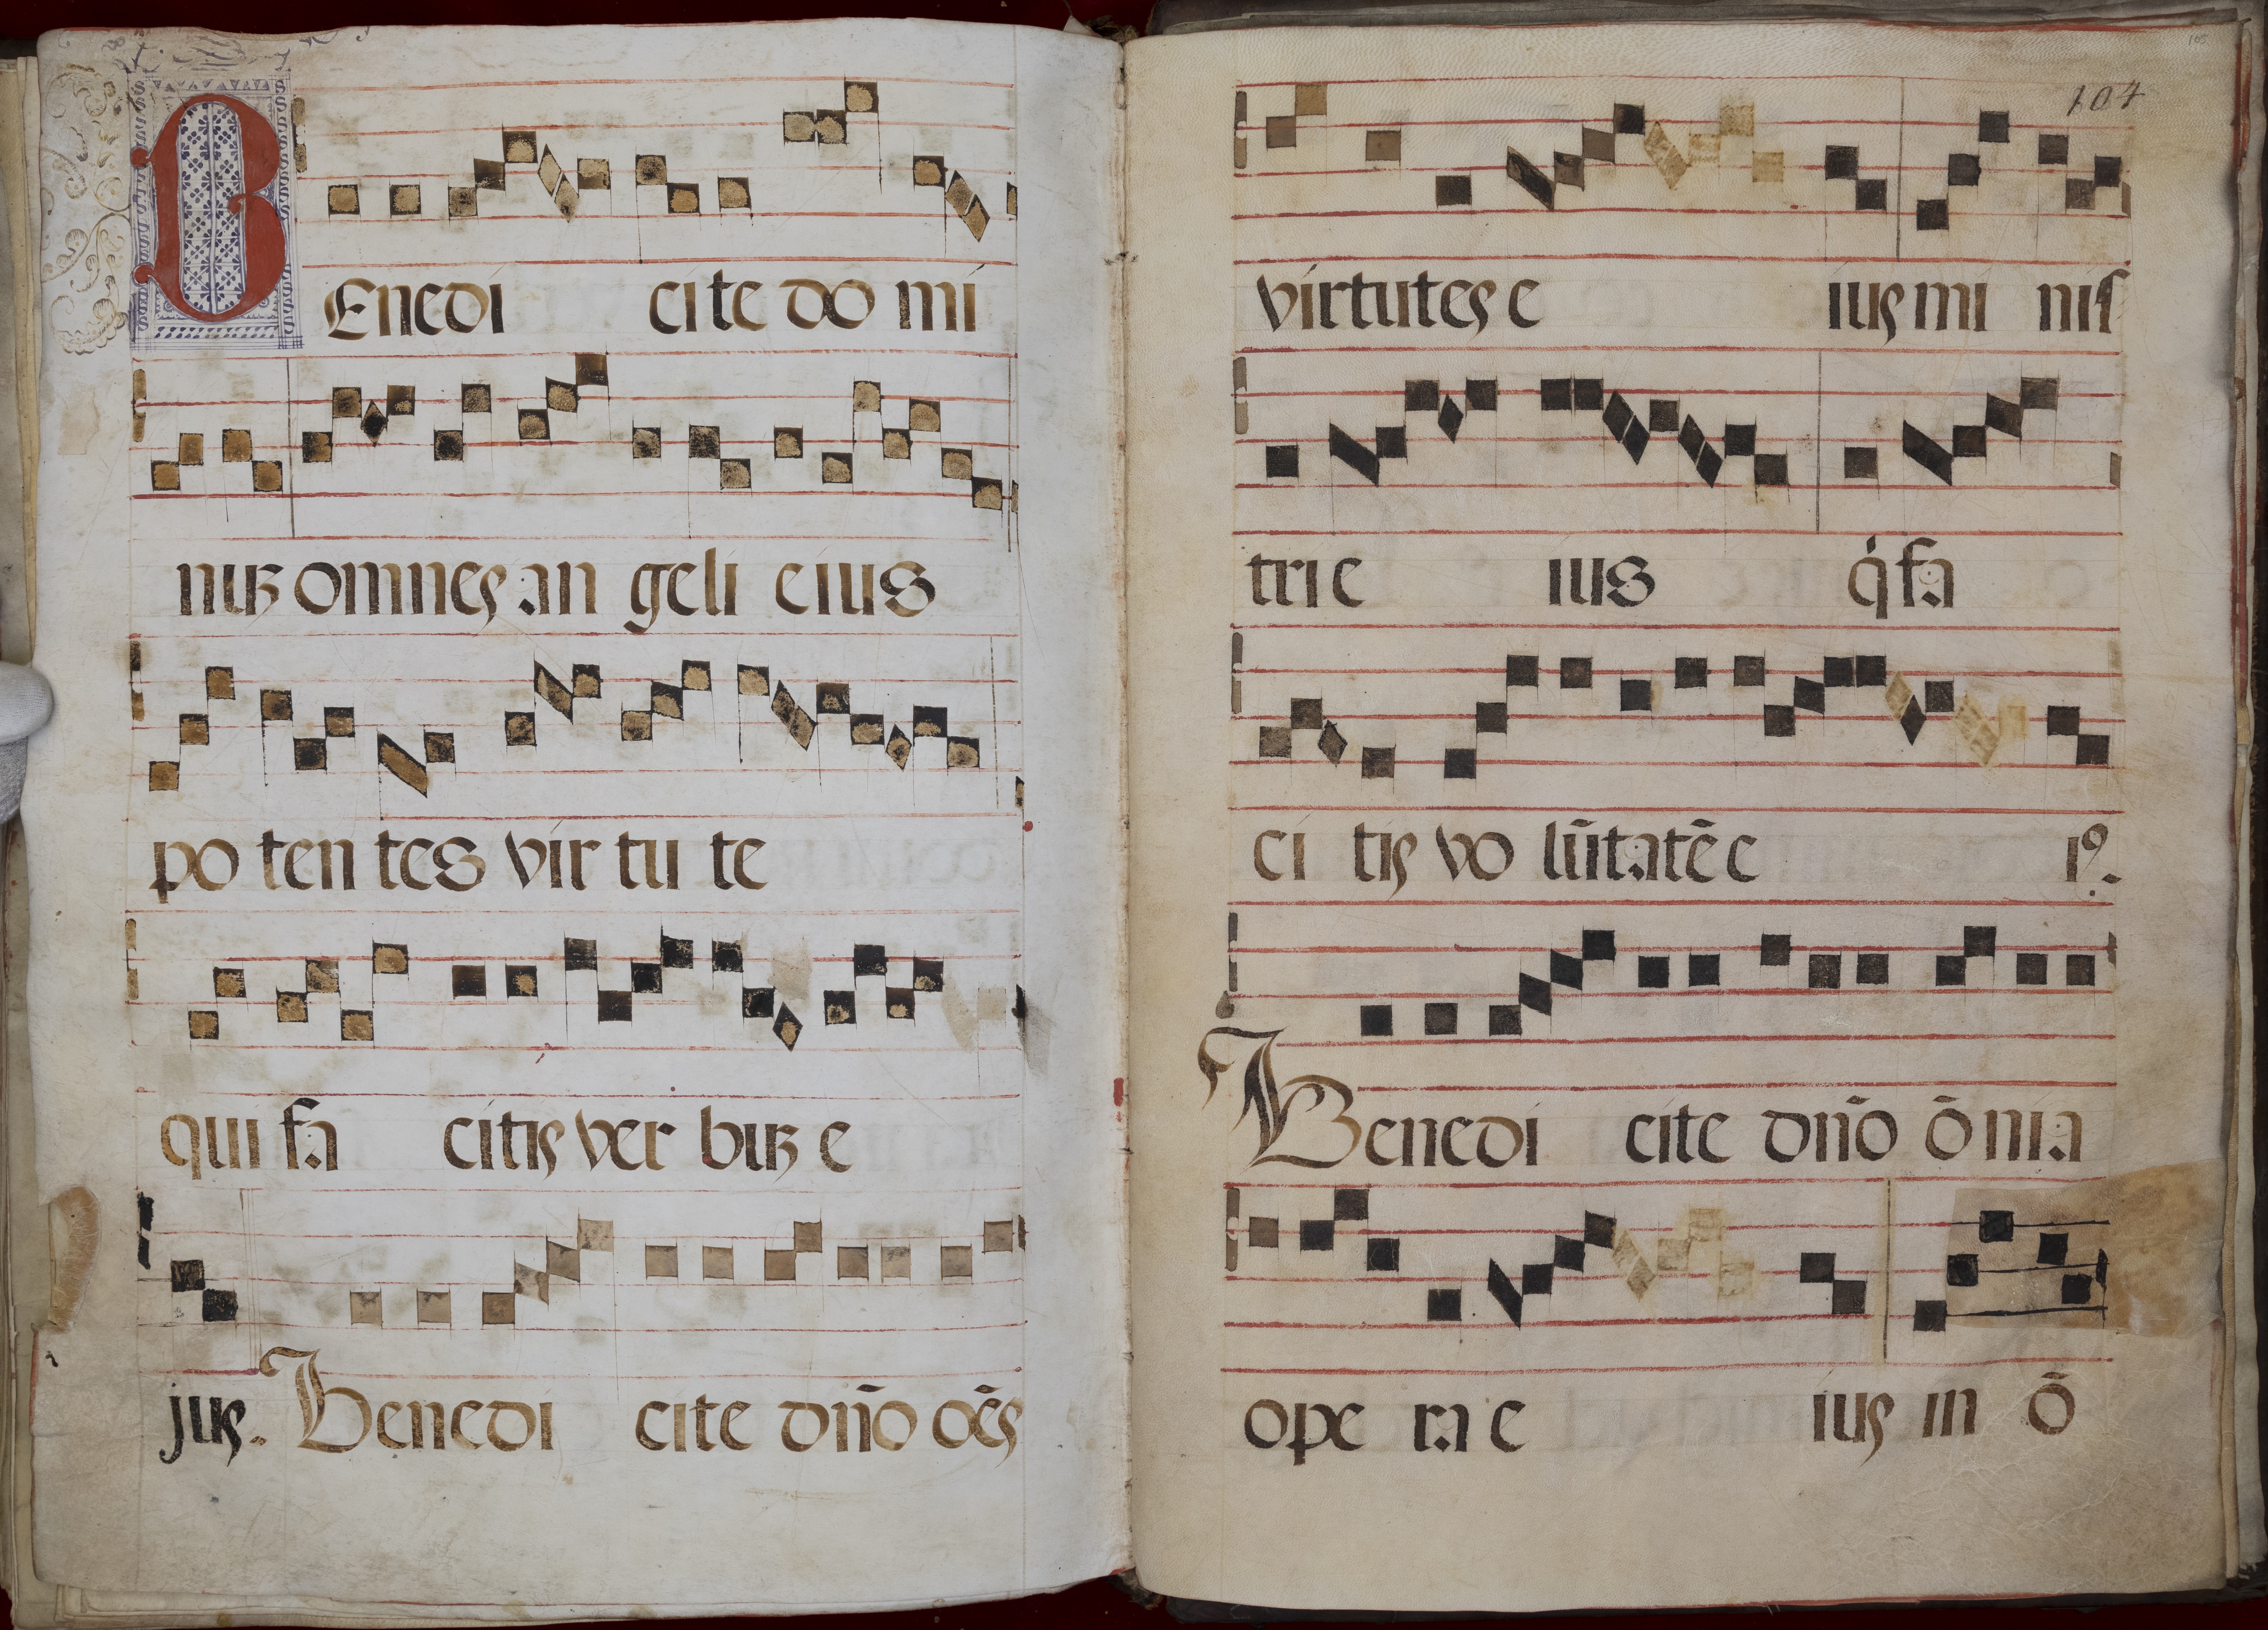 BEnedi cite do mi
nuꝫ omnes an geli eius
po ten tes vir tu te
qui fa citis ver buꝫ e
jus. Benedi cite dn̄o oēs
104
105
virtutes e ius mi nis
tri e ius q̇ fa
ci tis vo lūtatē e iꝰ.
Benedi cite dn̄o ō nia
ope ra e ius in ō